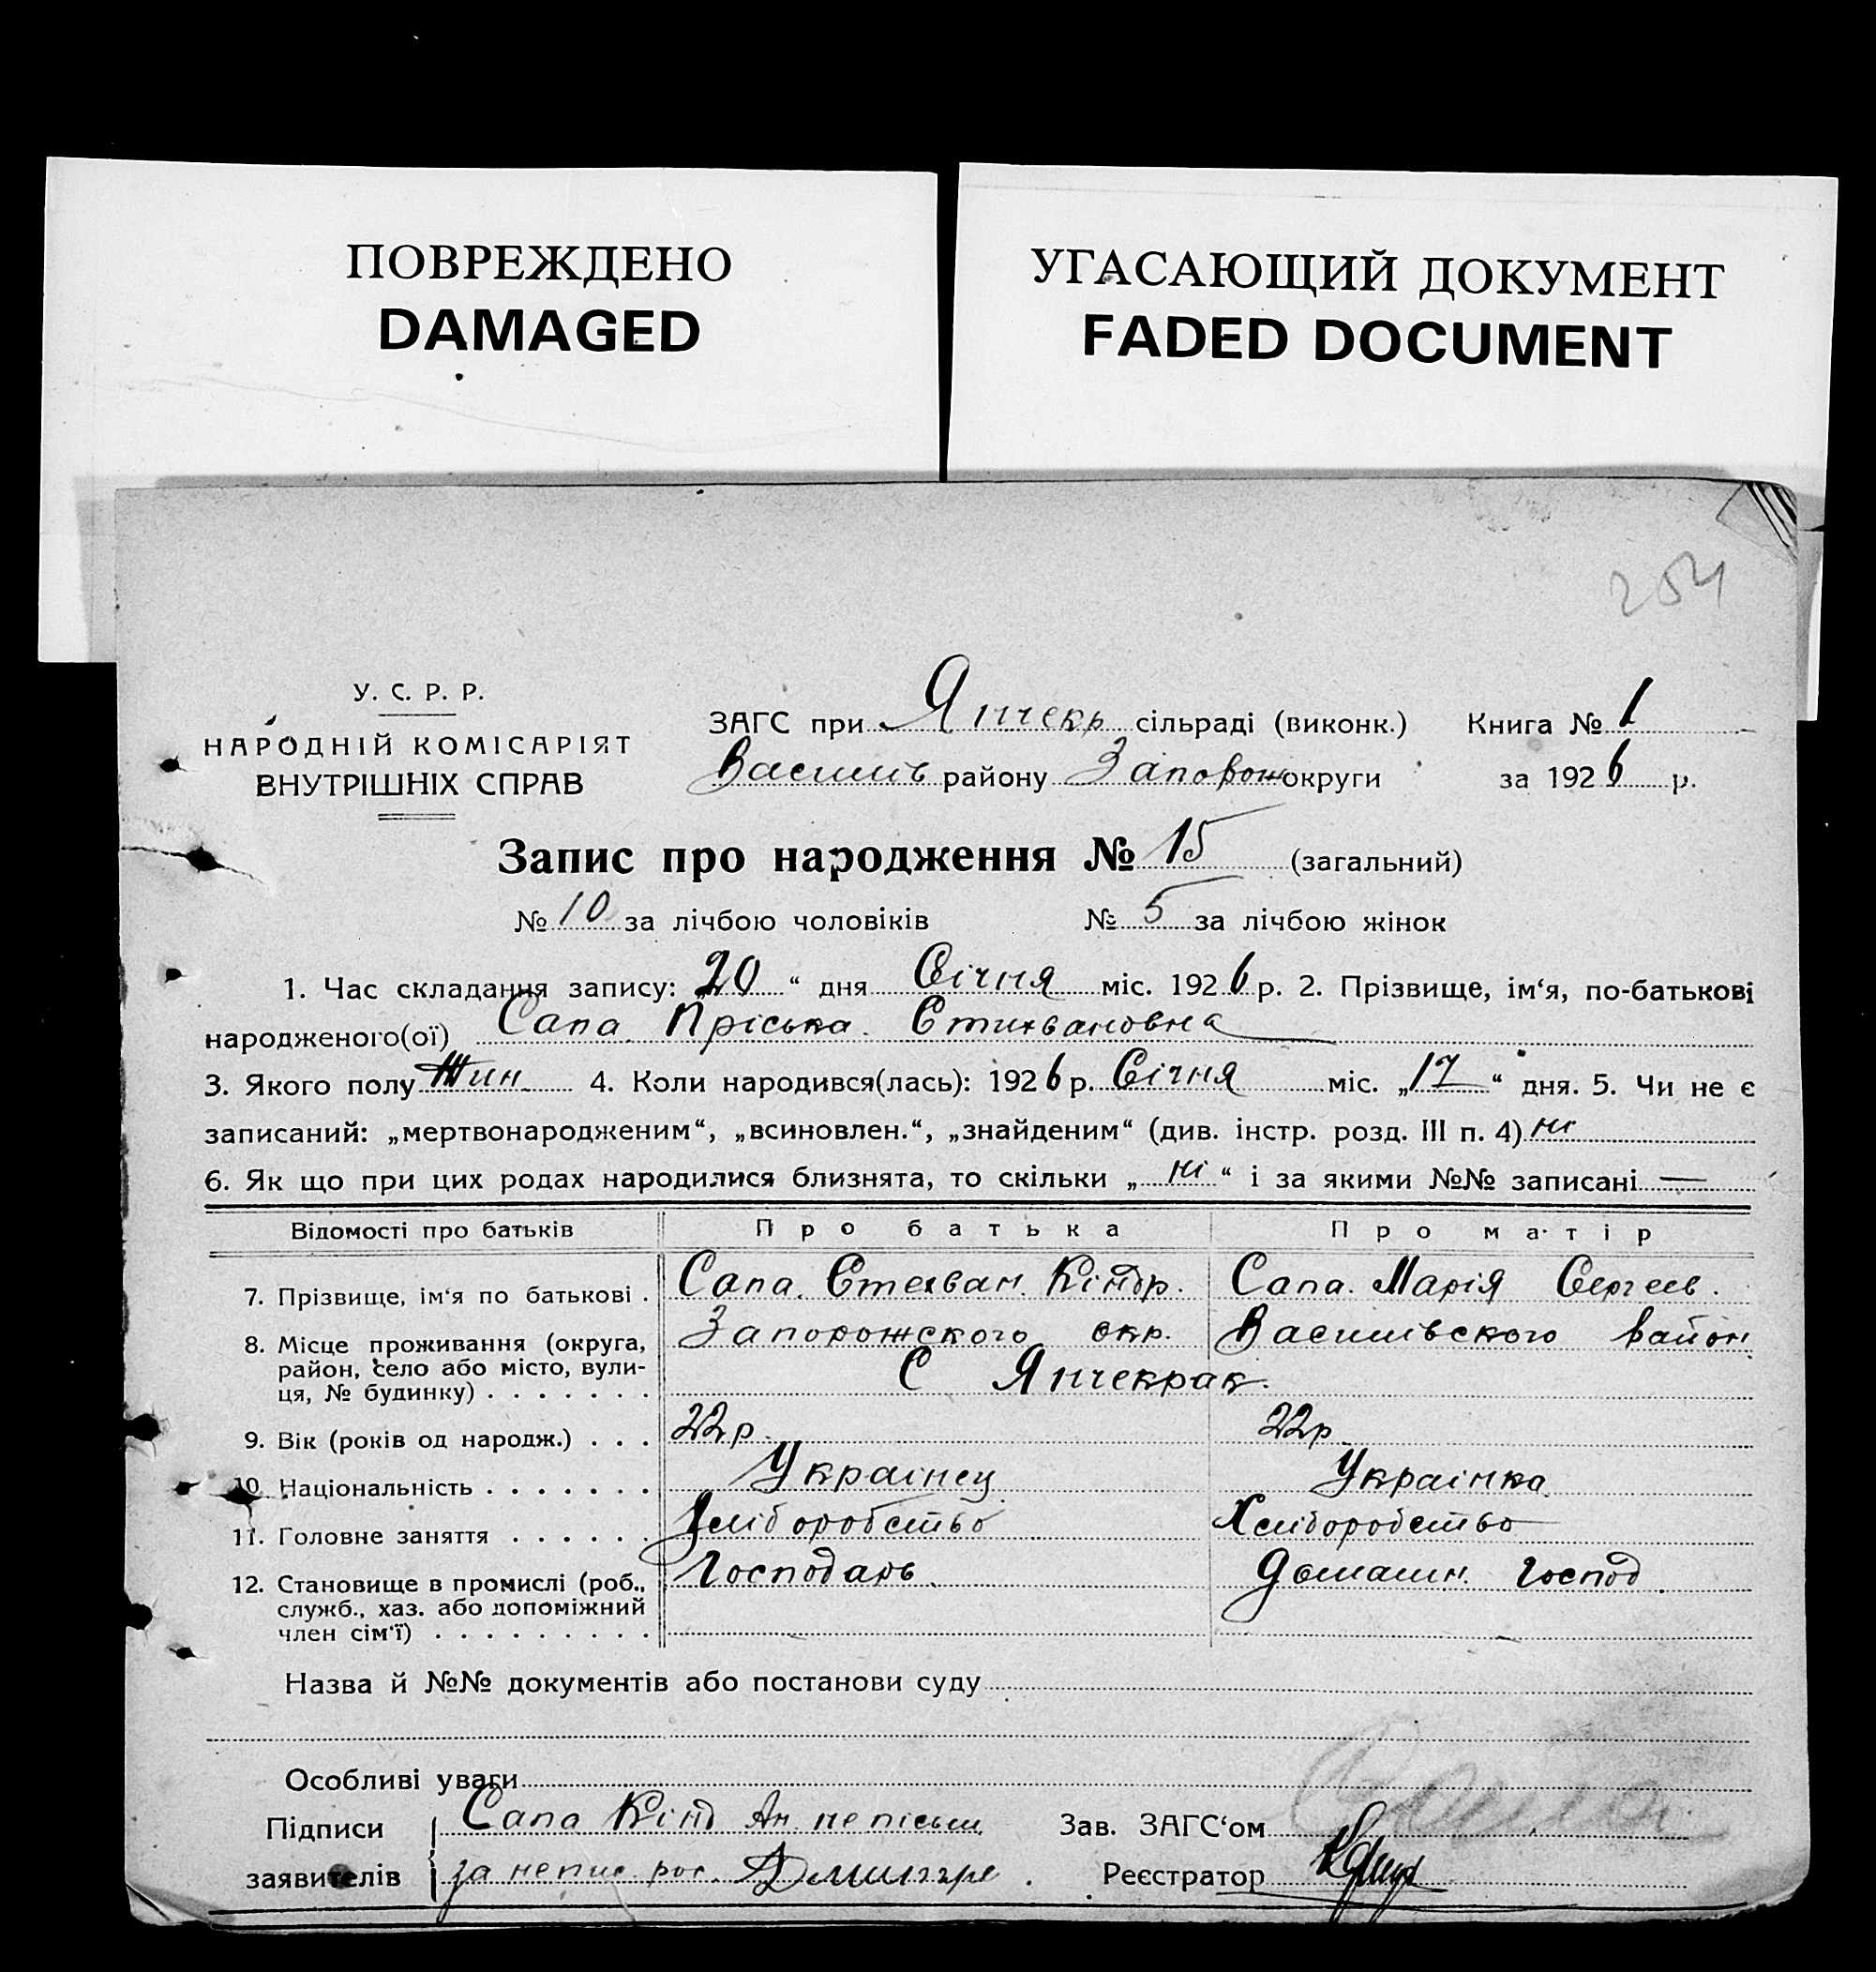 ПОВРЕЖДЕНО
DAMAGED
УГАСАЮЩИЙ ДОКУМЕНТ
FADED DOCUMENT
254
У. С. Р. Р.
НАРОДНІЙ КОМІСАРІЯТ
ВНУТРІШНІХ СПРАВ
ЗАГС при Янчекр сільраді (виконк.) Книга № 1
Василів району Запорож округи за 1926 р.
Запис про народження № 15 (загальний)
№ 10 за лічбою чоловіків № 5 за лічбою жінок
1. Час складання запису: „20“ дня Січня міс. 1926 р. 2. Прізвище, ім‘я, по-батькові
народженого(ої) Сапа Пріська Стихвановна
3. Якого полу Жин 4. Коли народився(лась): 1926 р. Січня міс. „17“ дня. 5. Чи не є
записаний: „мертвонародженим“, „всиновлен.“, „знайденим“ (див. інстр. розд. III п. 4) ні
6. Як що при цих родах народилися близнята, то скільки „ні“ і за якими №№ записані —
Відомості про батьків Про батька Про матір
7. Прізвище, ім‘я по батькові . Сапа. Стехван. Кіндр. Сапа. Марія Сергеев.
8. Місце проживання (округа, Запорожского окр. Василівского район
район, село або місто, вули- С Янчекрак.
ця, № будинку) . . . . . . .
9. Вік (років од народж.) . . . 22 р. 22 р.
10. Національність . . . . . . . Украінец Украінка
11. Головне заняття . . . . . . Хліборобство Хліборобство
12. Становище в промислі (роб., Господарь. Домашн. господ.
служб., хаз. або допоміжний
член сім‘ї) . . . . . . . . .
Назва й №№ документів або постанови суду
Особливі уваги
Підписи Сапа Кінд Ан непісьм Зав. ЗАГС‘ом
заявителів за непис рос. Реєстратор